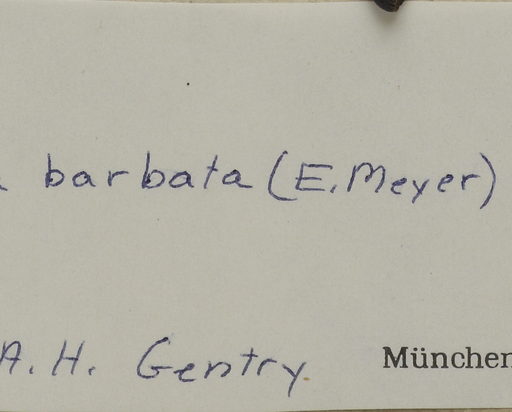 barbata (E. Meyer)
A. H. Gentry München